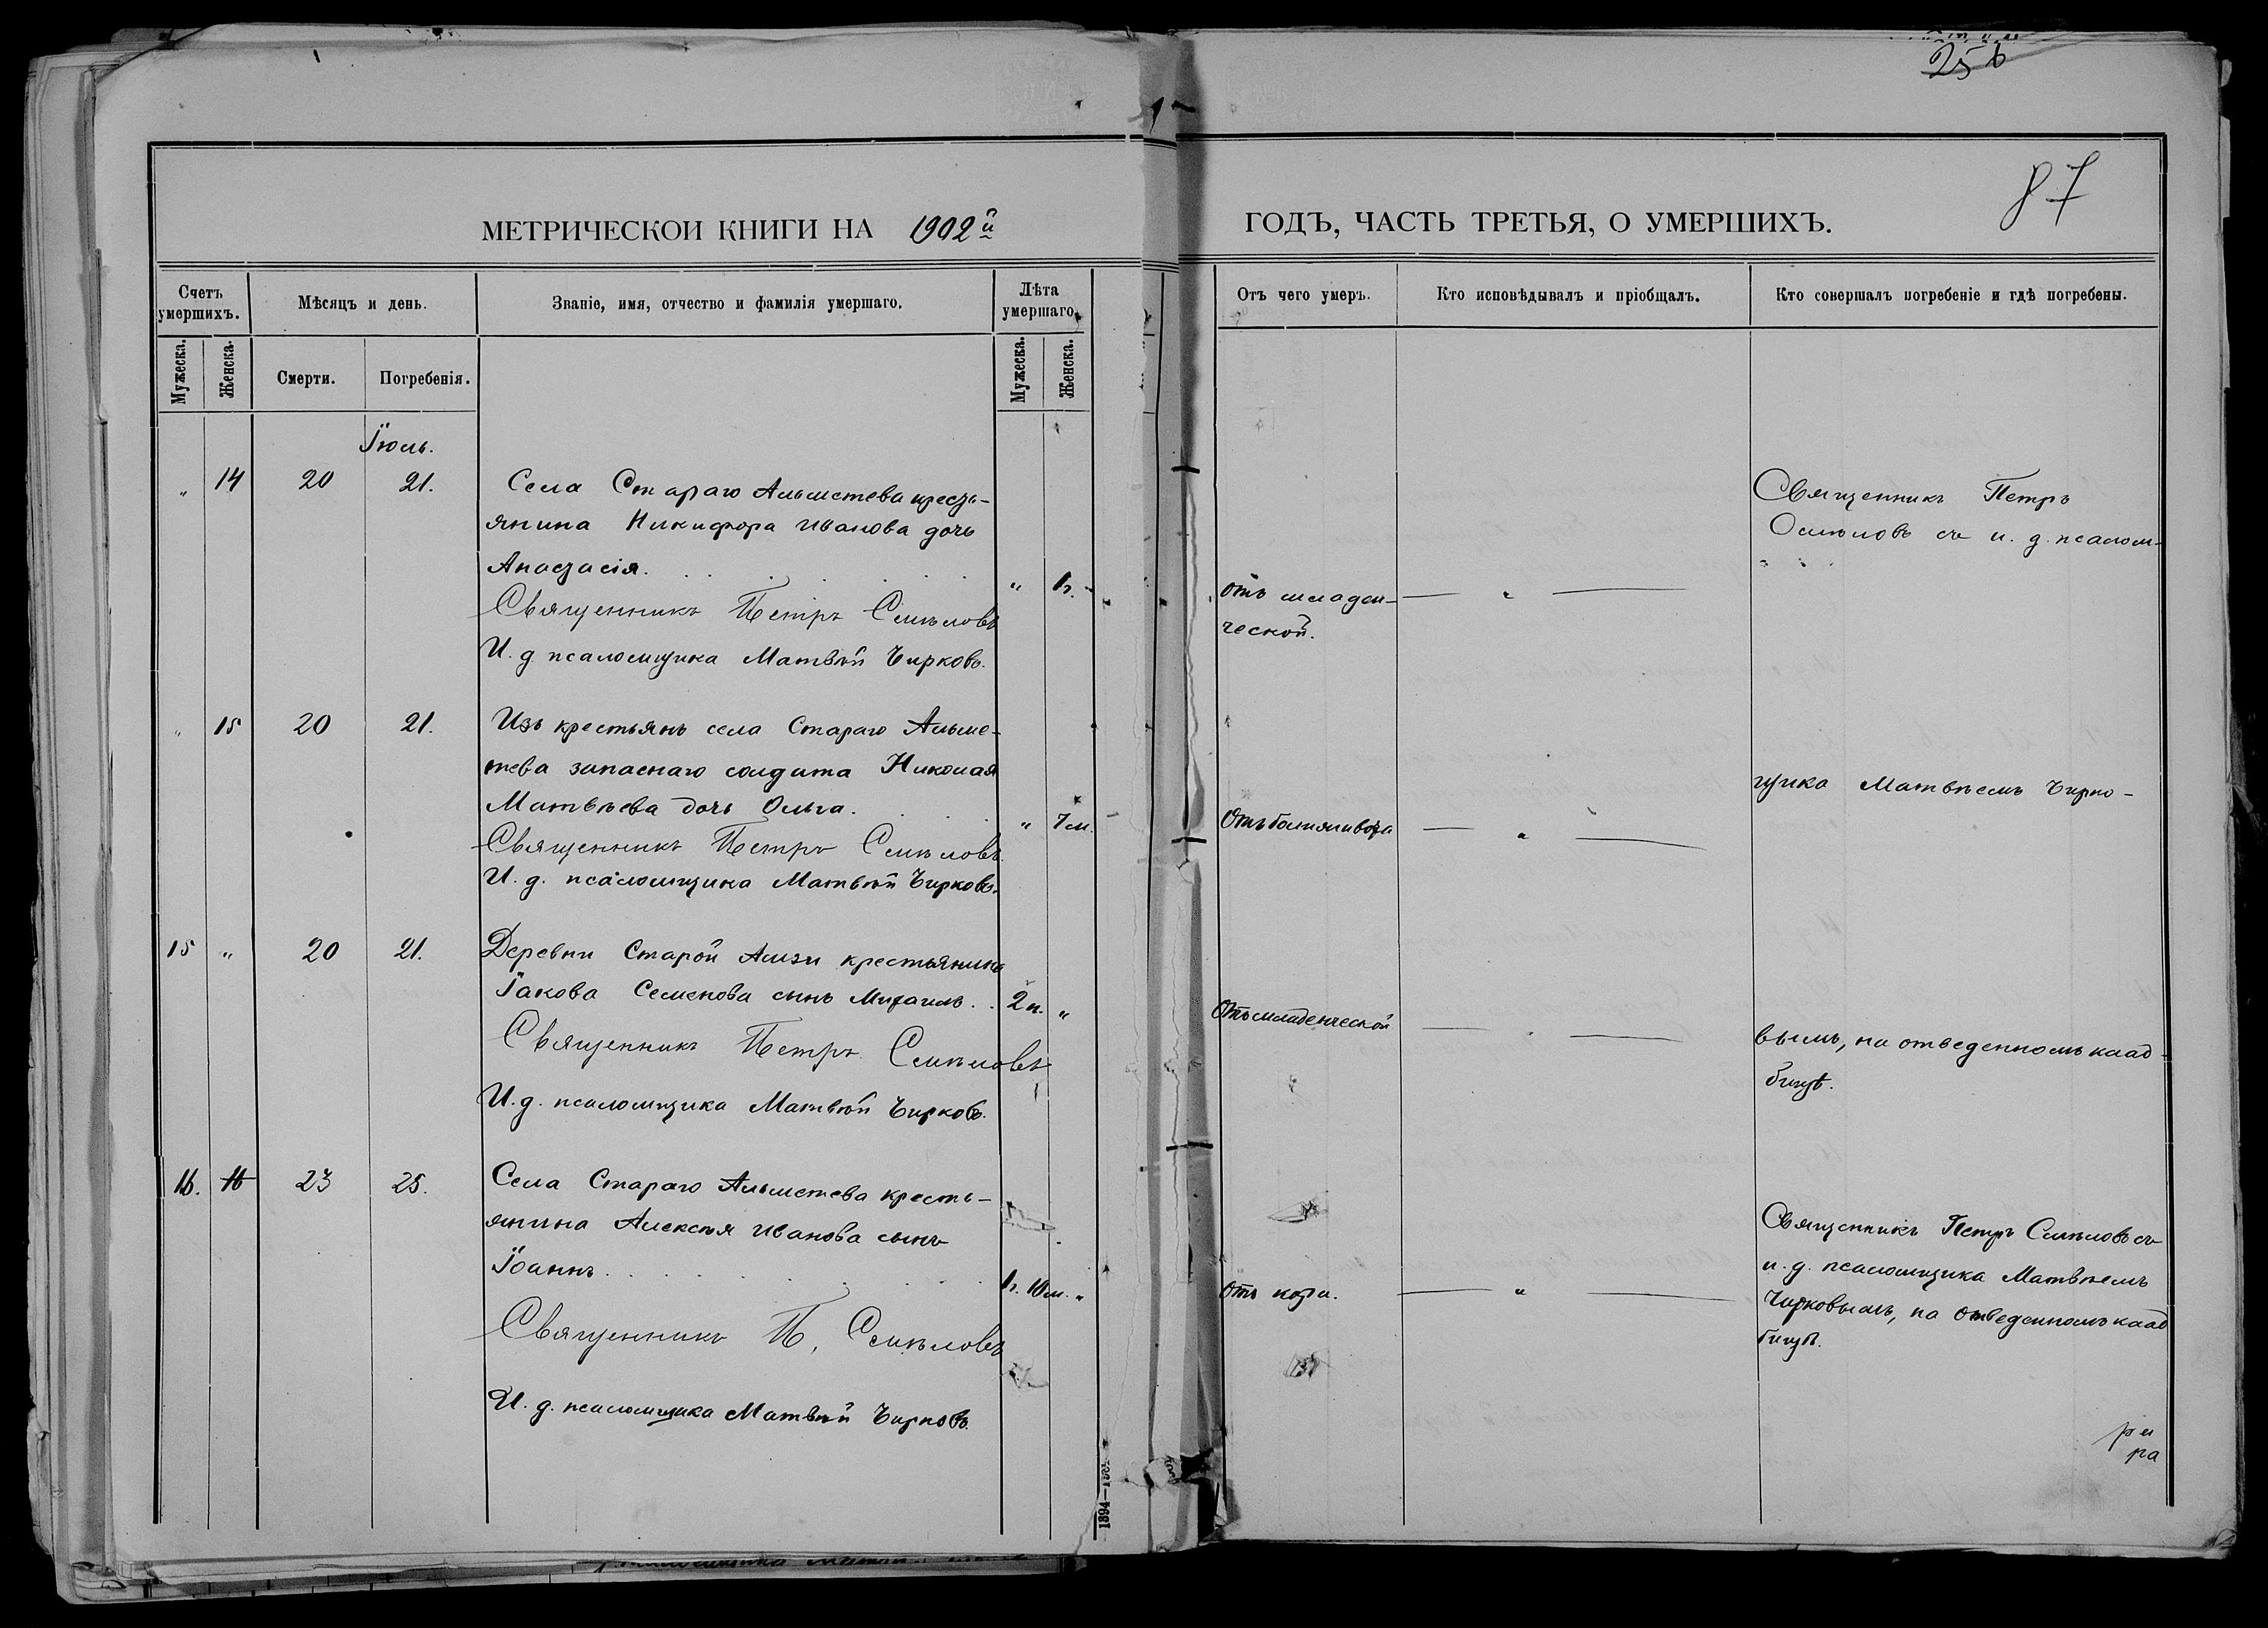 256
87
МЕТРИЧЕСКОЙ КНИГИ НА 1902й ГОДЪ, ЧАСТЬ ТРЕТЬЯ, О УМЕРШИХЪ.
Счетъ умершихъ.
Мѣсяцъ и день.
Званіе, имя, отчество и фамилія умершаго.
Лѣта умершаго.
Отъ чего умеръ.
Кто исповѣдывалъ и пріобщалъ.
Кто совершалъ погребеніе и гдѣ погребены.
Мужеска.
Женска.
Смерти.
Погребенія.
Мужеска.
Женска.
Іюль.
„ 14 20 21.
Села Стараго Альметева кресть-
янина Никифора Иванова дочь
Анастасія.
„ 1г.
отъ младен-
ческой.
„
Священникъ Петръ Смѣловъ
И. д. псаломщика Матвѣй Чирковъ.
Священникъ Петръ
Смѣловъ съ и. д. псалом-
„ 15 20 21.
Изъ крестьянъ села Стараго Альме-
тева запаснаго солдата Николая
Матвѣева дочь Ольга.
„ 7м.
„
Священникъ Петръ Смѣловъ
И. д. псаломщика Матвѣй Чирковъ.
щика Матвѣемъ Чирко-
15 „ 20 21.
Деревни Старой Амзи крестьянина
Іакова Семенова сынъ Михаилъ.
2н. „
Отъ младенческой
„
Священникъ Петръ Смѣловъ
И. д. псаломщика Матвѣй Чирковъ.
вымъ, на отведенномъ клад-
бищѣ.
16. 16 23 25.
Села Стараго Альметева кресть-
янина Алексѣя Иванова сынъ
Іоаннъ.
1г. 10м. „
Отъ кори.
„
Священникъ П. Смѣловъ
И. д. псаломщика Матвѣй Чирковъ.
Священникъ Петръ Смѣловъ съ
и. д. псаломщика Матвѣемъ
Чирковымъ, на отведенномъ клад
бищѣ.
1894—